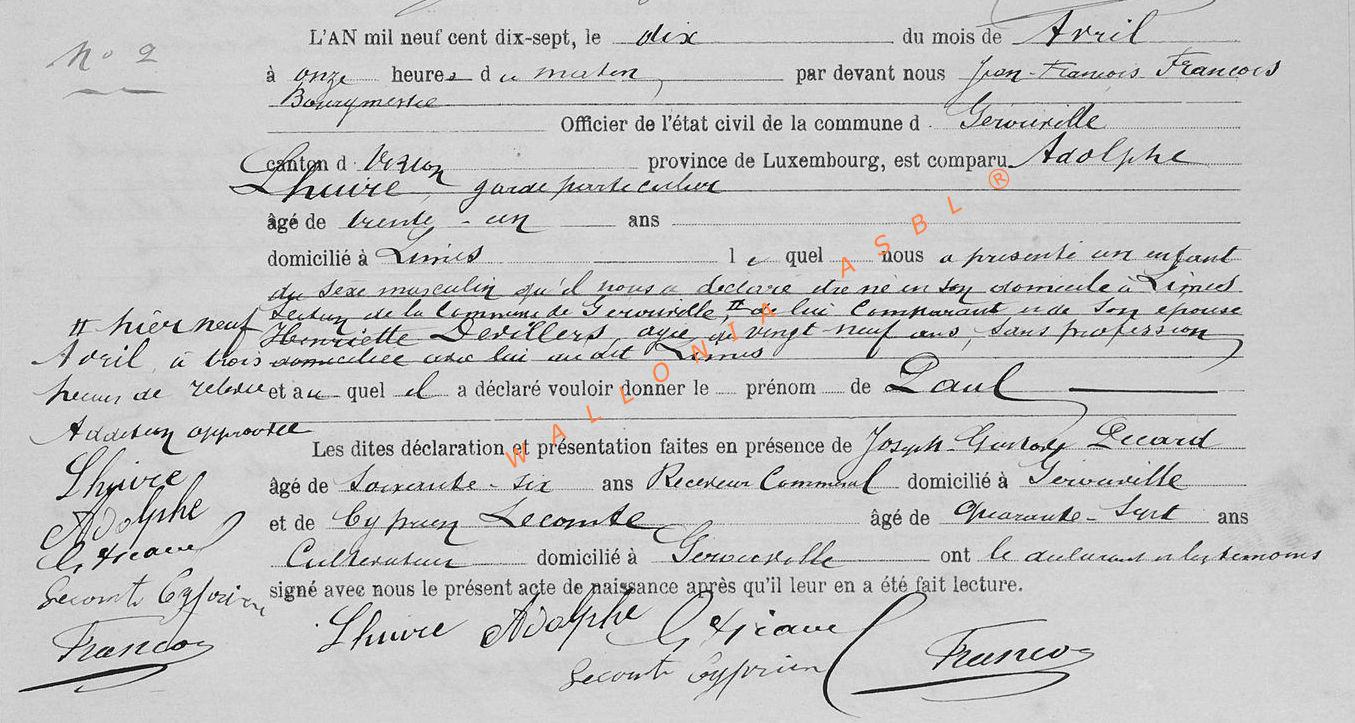 No 2
L'AN mil neuf cent dix-sept, le dix du mois de Avril
à onze heures du matin, par devant nous Jean-François François
Bourgmestre
Officier de l'état civil de la commune d Gerouville
canton d Virton province de Luxembourg, est comparu Adolphe
Lhuire, garde particulier
âgé de trente-un ans
domicilié à Limes lequel nous a présenté un enfant
du sexe masculin qu'il nous a déclaré être né en son domicile à Limes
section de la commune de Gerouville, # de lui comparant et de son épouse
Henriette Devillers, agée de vingt neuf ans, sans profession
domiciliée avec lui au dit Limes
et auquel il a déclaré vouloir donner le prénom de Paul
Les dites déclaration et présentation faites en présence de Joseph Gustave
âgé de soixante-six ans Receveur Communal domicilié à Gerouville
et de Cyprien Lecomte âgé de quarante-sept ans
Cultivateur domicilié à Gerouville ont le déclarant et les temoins
signé avec nous le présent acte de naissance après qu'il leur en a été fait lecture.
Lhuire Adolphe
Lecomte Cyprien
François
# hier neuf
Avril, à trois
heures de relevée
Addition approuvée
Lhuire
Adolphe
Lecomte Cyprien
François
WALLONIA ASBL ®